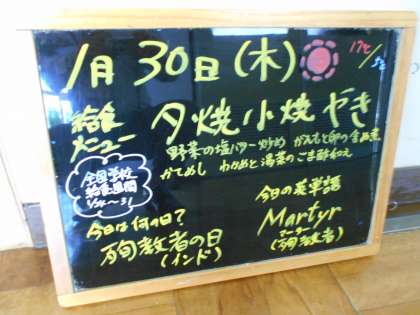 1月30日(木)
17℃/5℃
給食メニュー
夕焼小焼やき
野菜の塩バター炒め がんもと卵の含め煮
かてめし わかめと湯菜のごま酢和え
全国学校
給食週間
1/24～31
今日は何の日?
殉教者の日
(インド)
今日の英単語
Martyr
マーター
(殉教者)